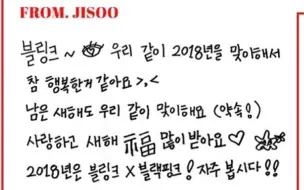 FROM. JISOO
블링크 ~ 우리 같이 2018년을 맞이해서
참 행복한거 같아요 >,<
남은 새해도 우리 같이 맞이해요 (약속!)
사랑하고 새해 福 많이 받아요♡
2018년은 블링크 X 블랙핑크! 자주 봅시다!!